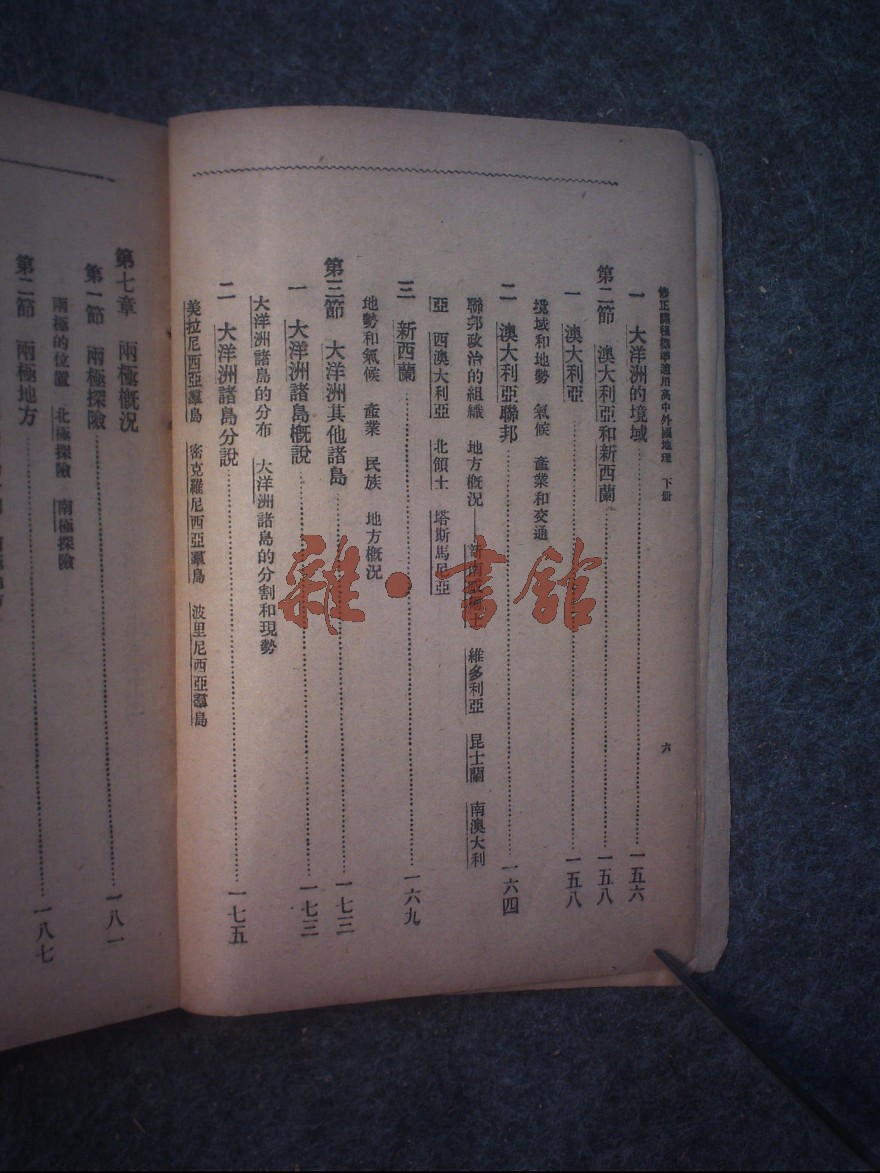 修正課程標準適用高中外國地理　下册　六
一　大洋洲的境域……一五六
第二節　澳大利亞和新西蘭……一五八
一　澳大利亞……一五八
境域和地勢　氣候　產業和交通
二　澳大利亞聯邦……一六四
聯邦政治的組織　地方概況——新南威爾士　維多利亞　昆士蘭　南澳大利
亞　西澳大利亞　北領土　塔斯馬尼亞
三　新西蘭……一六九
地勢和氣候　產業　民族　地方概況
第三節　大洋洲其他諸島……一七三
一　大洋洲諸島概說……一七三
大洋洲諸島的分布　大洋洲諸島的分割和現勢
二　大洋洲諸島分說……一七五
美拉尼西亞羣島　密克羅尼西亞羣島　波里尼西亞羣島
第七章　兩極概況
第一節　兩極探險……一八一
兩極的位置　北極探險　南極探險
第二節　兩極地方……一八七
雜·書館